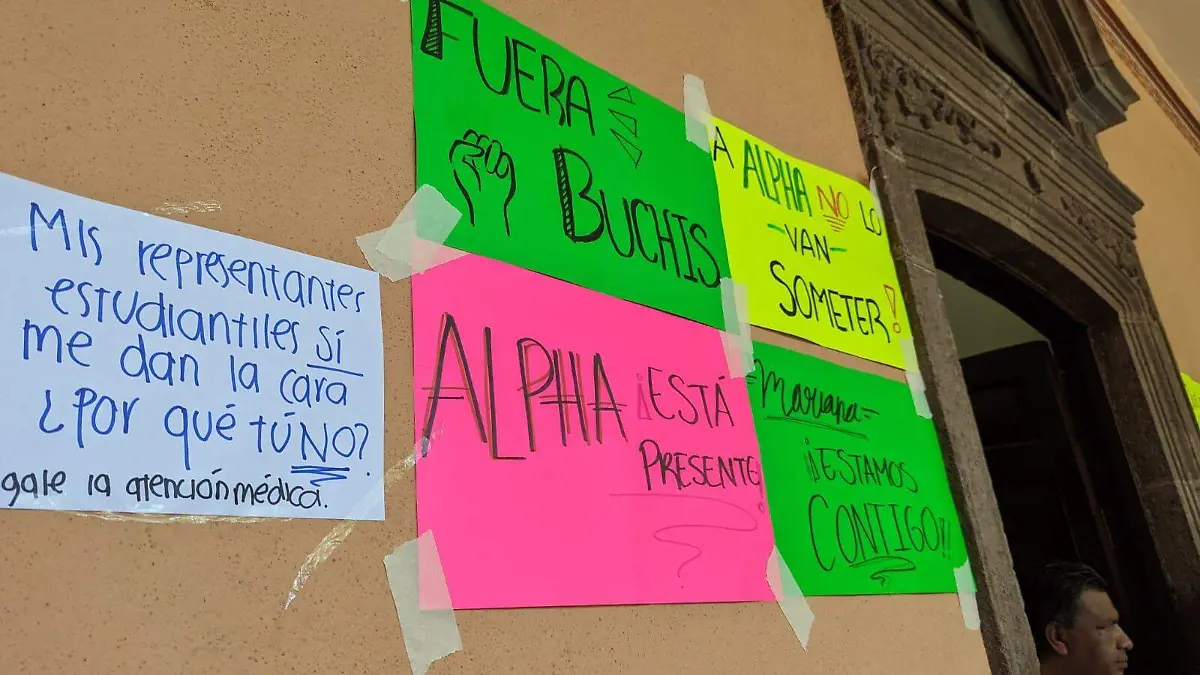 Mis representantes
estudiantiles sí
me dan la cara
¿Por qué tú NO?
gale la atención médica.
FUERA
BUCHIS
A ALPHA NO LO
VAN
SOMETER!
ALPHA ¡ESTÁ
PRESENTE!
Mariana
¡¡ESTAMOS
CONTIGO!!